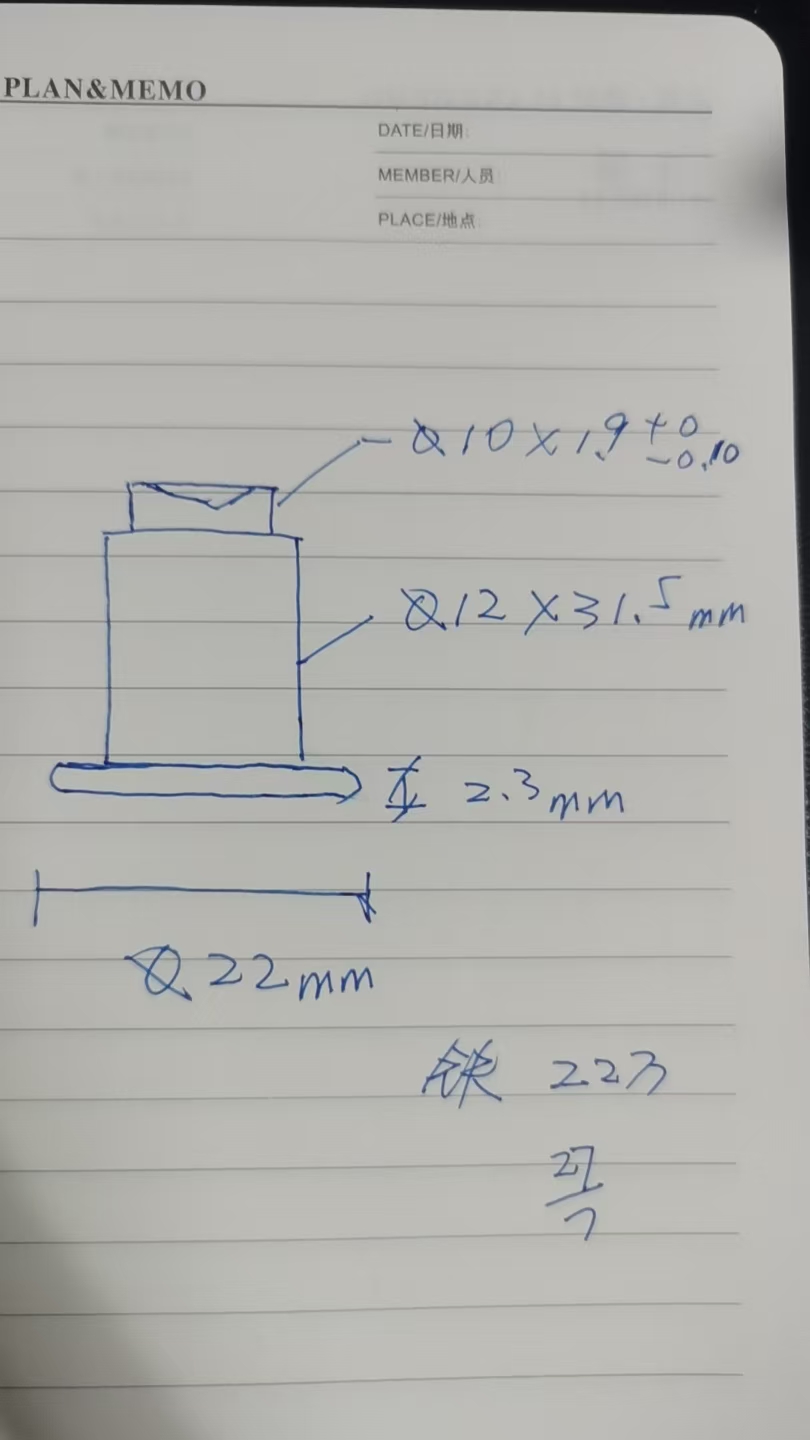 PLAN&MEMO
DATE/日期:
MEMBER/人员
PLACE/地点:
Ø10×1.9 +0 -0.10
Ø12×31.5mm
2.3mm
Ø22mm
铁 22万